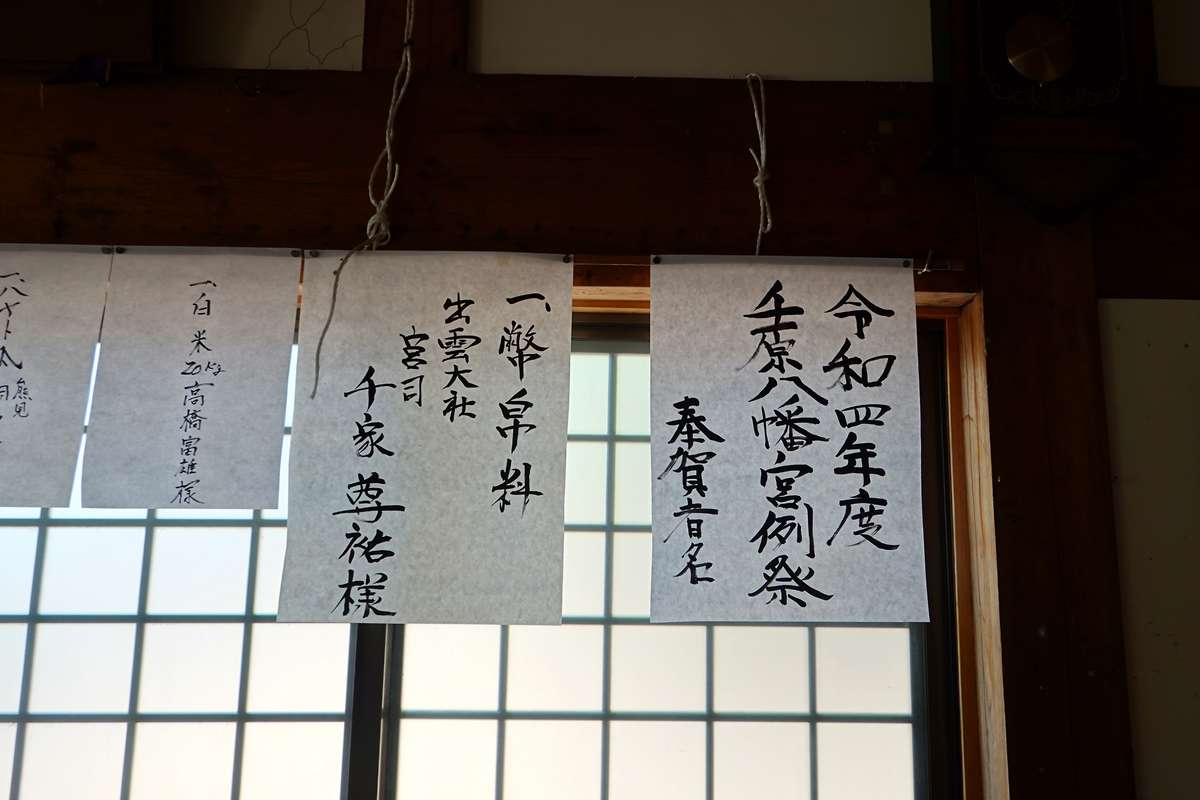 令和四年度
千原八幡宮例祭
奉賀者名
一、幣帛料
出雲大社
宮司
千家尊祐様
一、白米20kg高橋富雄様